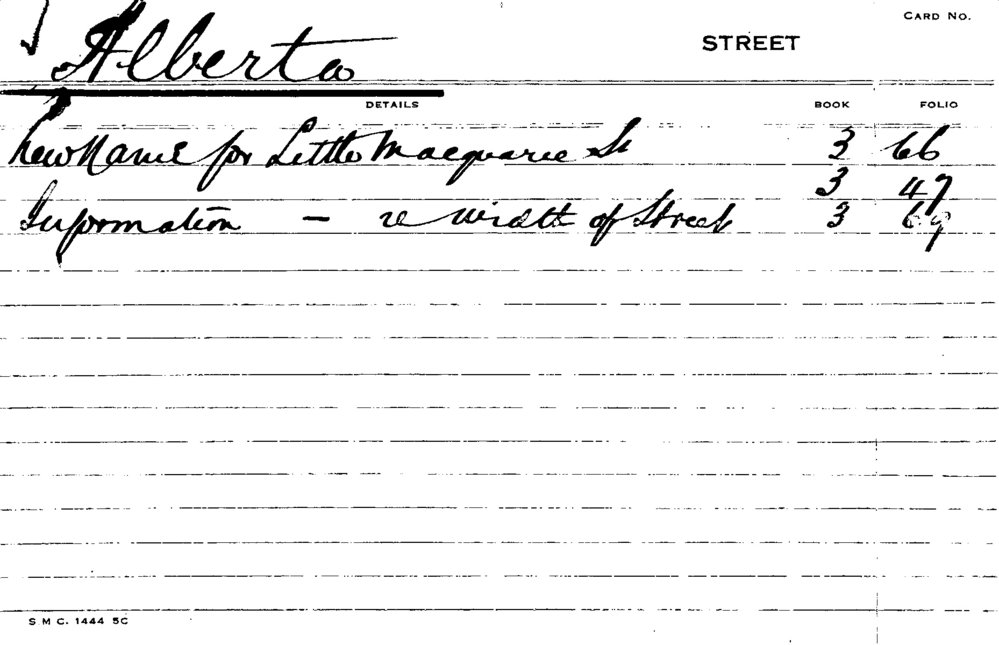 CARD NO.
Alberta STREET
DETAILS BOOK FOLIO
New Name for Little Macquarie St 3 66
3 47
Information — re width of Street 3 69
S M C. 1444 5C